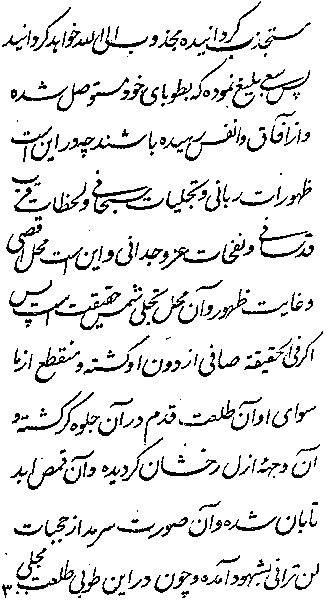 مستجذب گردانیده مجذوب الی الله خواهد گردانید
پس سعی بلیغ نموده که بطوبای خود متوصل شده
و از آفاق و انفس رهیده باشند چه در این است
ظهورات ربانی و تجلیات سبحانی و لحظات قرب
قدسانی و نفحات عز وجدانی و این است محل اقصی
و غایت ظهور و آن محل تجلی شمس حقیقت است پس
اگر فی الحقیقه صافی از دون او گشته و منقطع از ما
سوای او آن طلعت قدم در آن جلوه گر گشته و
آن وجهۀ ازل رخشان گردیده و آن قمص ابد
تابان شده و آن صورت سرمد از حجبات
لن ترانی بشهود آمده و چون در این طوبی طلعت مجلی
۳